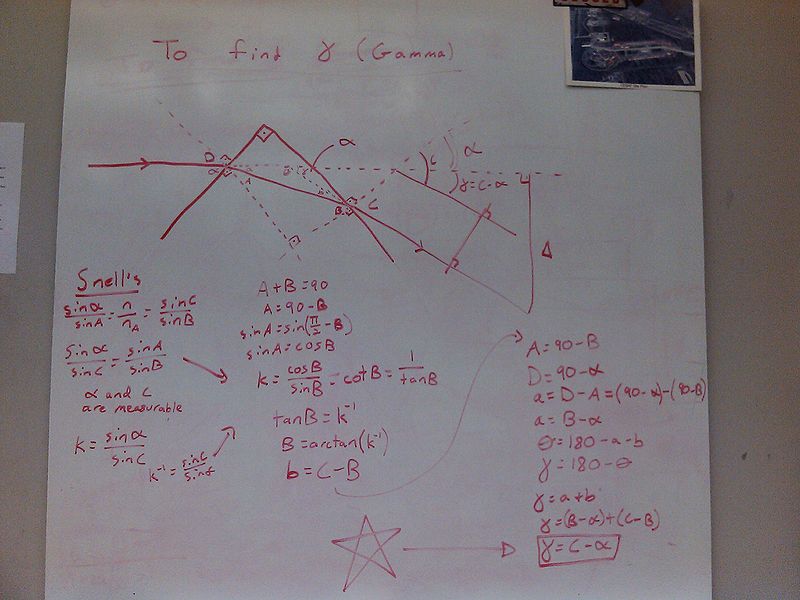 To find γ (Gamma)
α
D
α
A
B
C
c
α
γ=c-α
Δ
Snell's
sinα/sinA = n/n_A = sinC/sinB
sinα/sinC = sinA/sinB
α and C
are measurable
k = sinα/sinC
k⁻¹ = sinC/sinα
A+B=90
A=90-B
sinA=sin(π/2-B)
sinA=cosB
k=cosB/sinB=cotB=1/tanB
tanB=k⁻¹
B=arctan(k⁻¹)
b=C-B
A=90-B
D=90-α
a=D-A=(90-α)-(90-B)
a=B-α
θ=180-a-b
γ=180-θ
γ=a+b
γ=(B-α)+(C-B)
γ=C-α